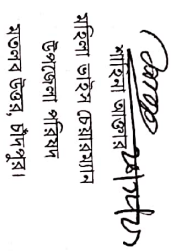 শাহিনা আক্তার
মহিলা ভাইস চেয়ারম্যান
উপজেলা পরিষদ
মতলব উত্তর, চাঁদপুর।